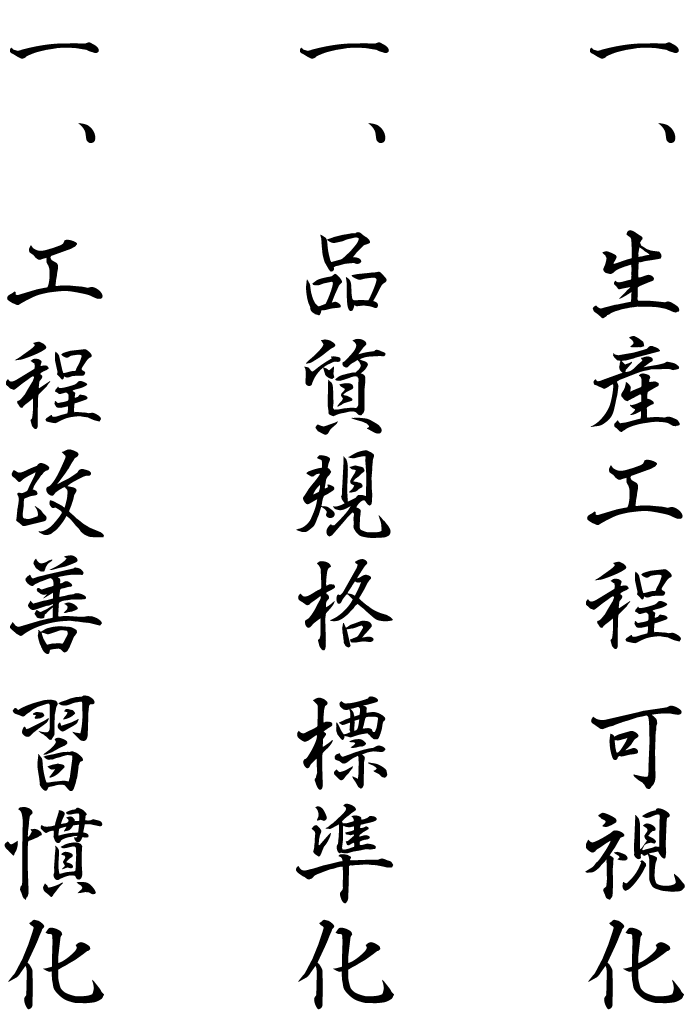 一、生産工程可視化
一、品質規格標準化
一、工程改善習慣化